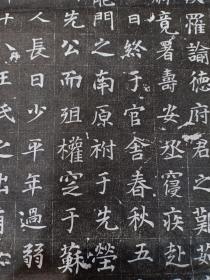 羅諭德府君之
竟署壽安丞寢疾赴
日終于官舍春秋五
龍門之南原祔于先塋
先公而殂權窆于蘇
人長日少平年過弱
十八王氏之出有